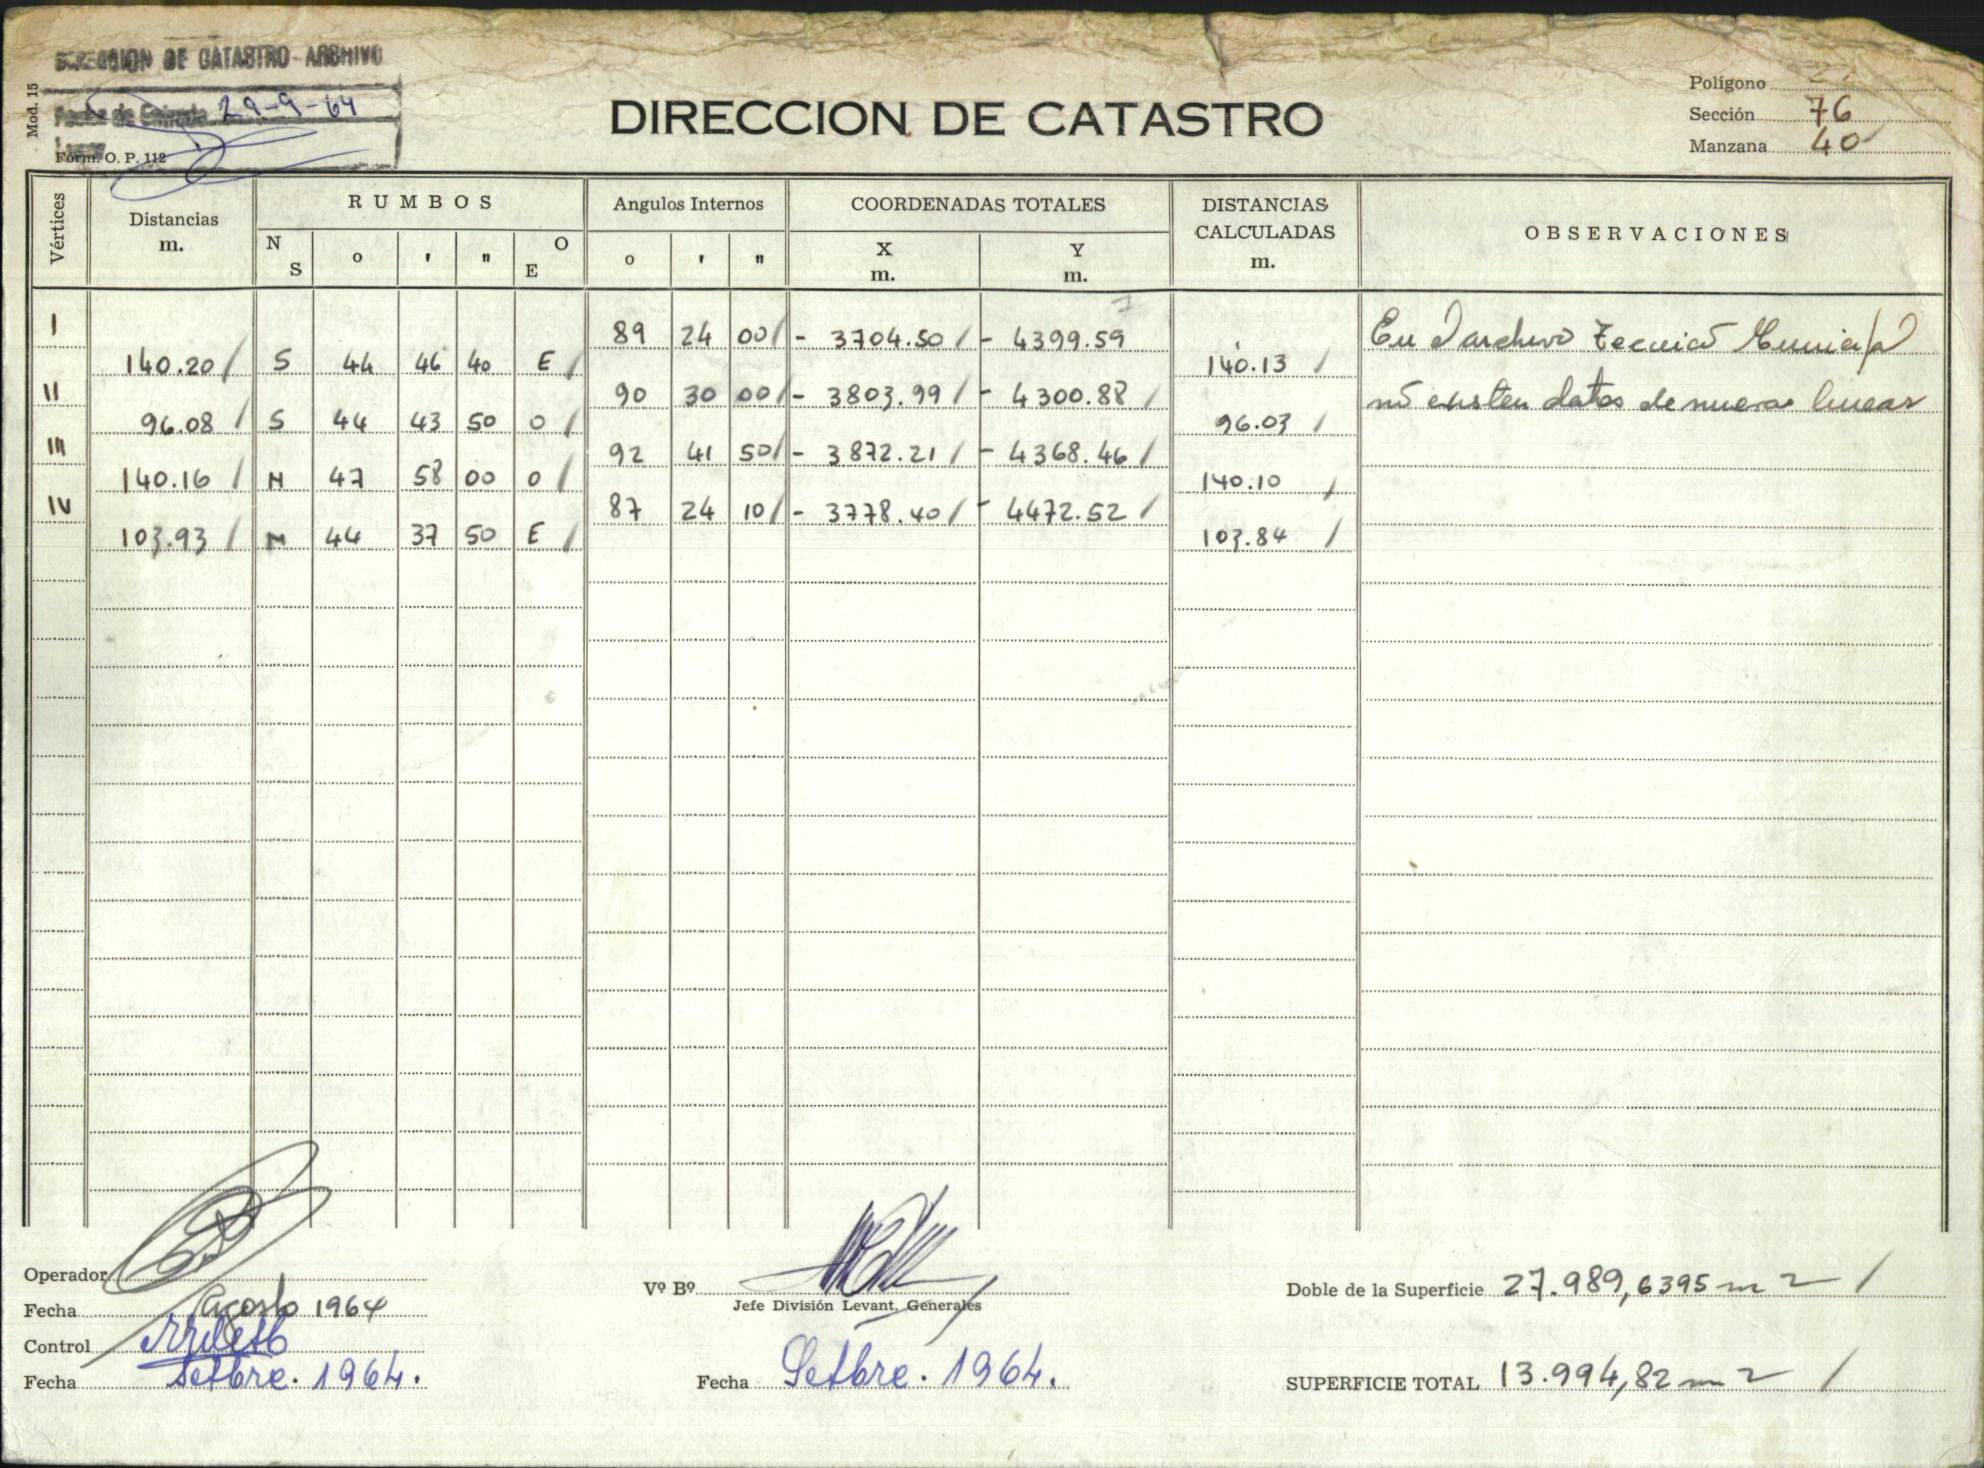 DIRECCION DE CATASTRO - ARCHIVO
Mod. 15
Fecha de Entrada 29-9-64
Form. O. P. 112
DIRECCION DE CATASTRO
Polígono
Sección 76
Manzana 40
Vértices
Distancias
m.
RUMBOS
N S
o ' "
O E
Angulos Internos
o ' "
COORDENADAS TOTALES
X
m.
Y
m.
DISTANCIAS
CALCULADAS
m.
OBSERVACIONES
I 89 24 00 / - 3704.50 / - 4399.59
140.20 / S 44 46 40 E / 140.13 /
II 90 30 00 / - 3803.99 / - 4300.88 /
96.08 / S 44 43 50 O / 96.03 /
III 92 41 50 / - 3872.21 / - 4368.46 /
140.16 / N 47 58 00 O / 140.10 /
IV 87 24 10 / - 3778.40 / - 4472.52 /
103.93 / N 44 37 50 E / 103.84 /
En el archivo Tecnico Municipal
no existen datos de nuevas lineas
Operador
Fecha Agosto 1964
Control
Fecha Setbre. 1964.
Vº Bº
Jefe División Levant. Generales
Fecha Setbre. 1964.
Doble de la Superficie 27.989,6395 m2 /
SUPERFICIE TOTAL 13.994,82 m2 /